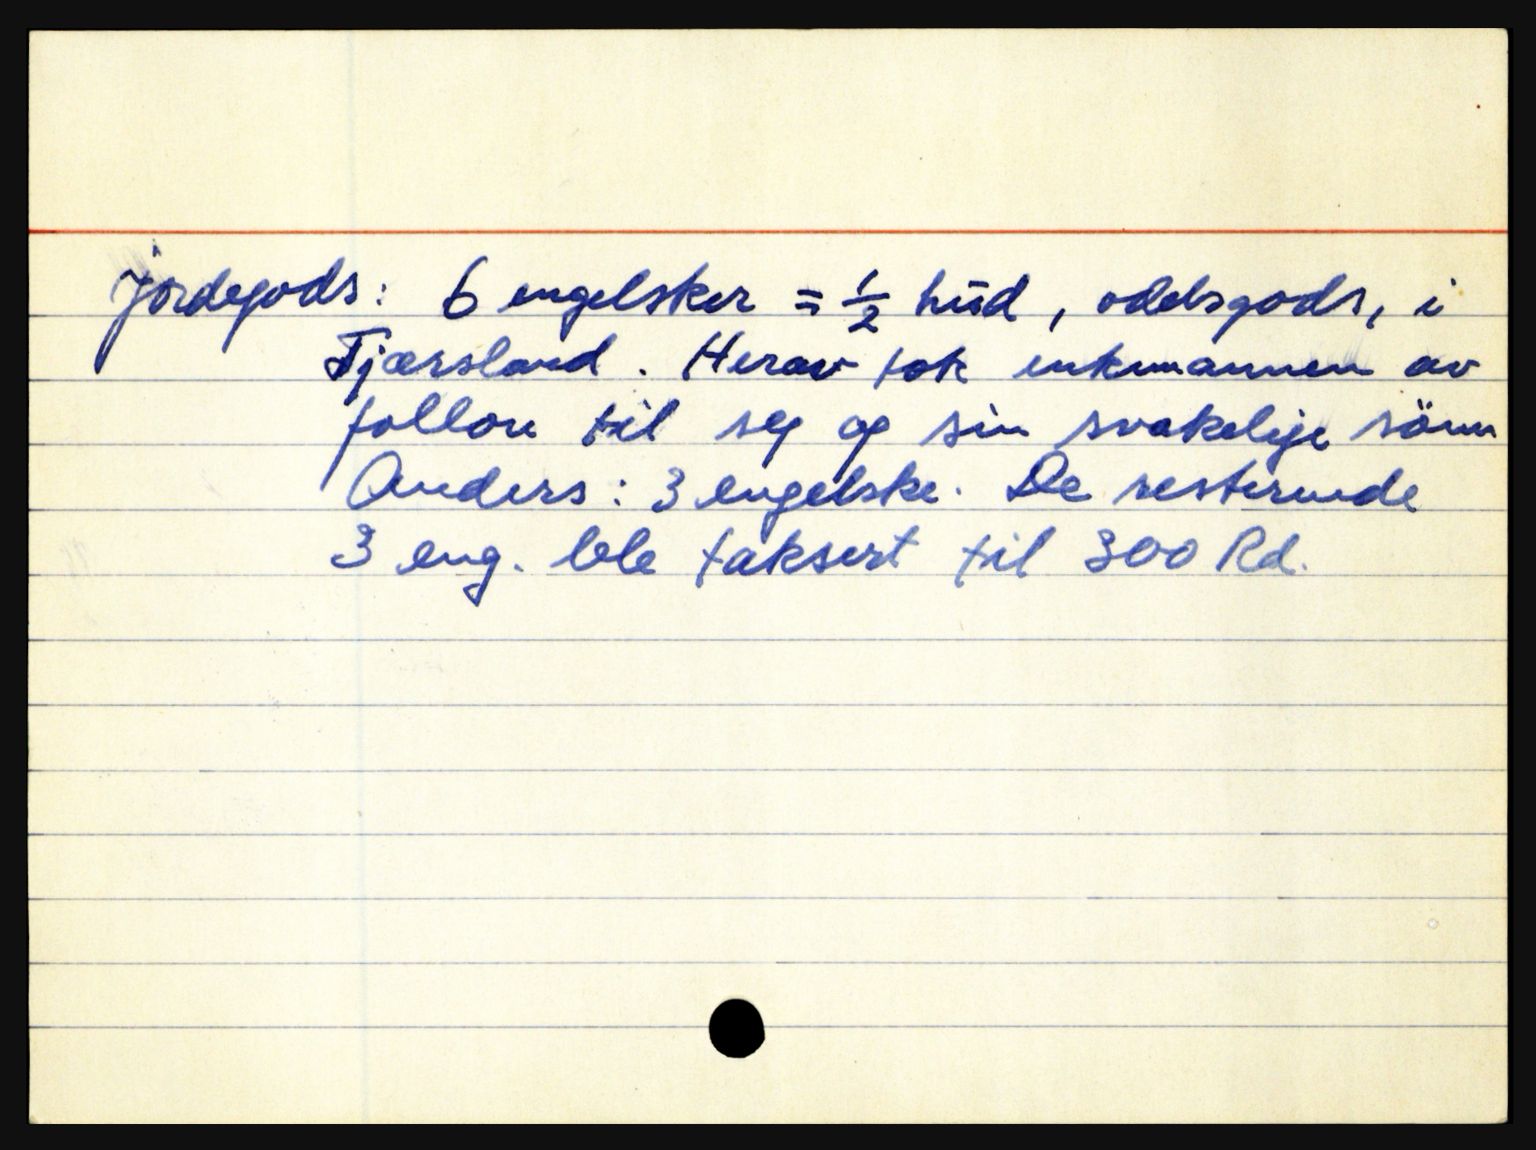 Jordegods: 6 engelsker = 1/2 hud, oddsgods, i
Fjærsland. Herav tok enkmannen av
follou til seg og sin svakelige sönn
Anders: 3 engelske. De resterende
3 eng. ble taksert til 300 Rd.